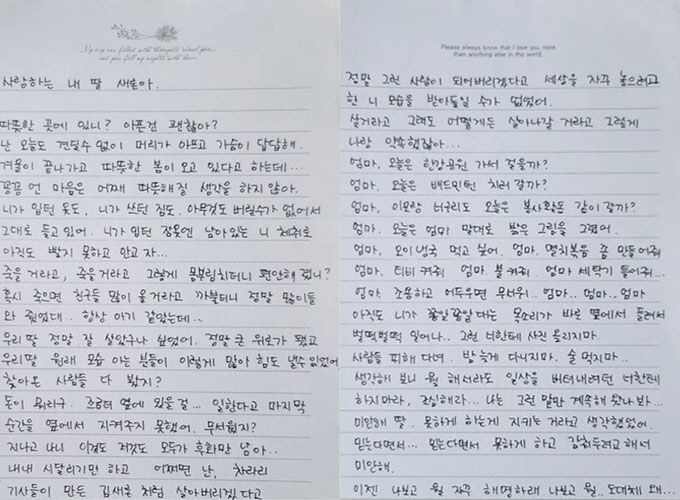 My day are filled with thoughts about you
and you fill my nights with love.
사랑하는 내 딸 새론아.
따뜻한 곳에 있니? 아픈건 괜찮아?
난 오늘도 견딜수 없이 머리가 아프고 가슴이 답답해.
겨울이 끝나가고 따뜻한 봄이 오고 있다고 하는데...
꽁꽁 언 마음은 어째 따뜻해질 생각을 하지 않아.
니가 입던 옷도, 니가 쓰던 짐도, 아무것도 버릴수가 없어서
그대로 들고 있어. 니가 입던 잠옷엔 남아있는 니 체취로
아직도 빨지 못하고 안고 자...
죽을거라고, 죽을거라고 그렇게 몸부림치더니 편안해 졌니?
혹시 죽으면 친구들 많이 올거라고 까불더니 정말 많이들
와 줬었다. 항상 아기 같았는데...
우리딸 정말 잘 살았구나 싶었어. 정말 큰 위로가 됐고
우리딸 원래 모습 아는 분들이 이렇게 많아 힘도 낼수 있었어
찾아온 사람들 다 봤지?
돈이 뭐라구. 조금더 옆에 있을걸... 일한다고 마지막
순간을 옆에서 지켜주지 못했어. 무서웠지?
지나고 나니 이것도 저것도 모두가 후회만 남아..
내내 시달리기만 하고 어쩌면 난, 차라리
기사들이 만든 김새론 처럼 살아버리겠다고
Please always know that I love you more
than anything else in the world.
정말 그런 사람이 되어버리겠다고 세상을 자꾸 놓으려고
한 니 모습을 받아들일 수가 없었어.
살거라고 그래도 어떻게든 살아나갈 거라고 그렇게
나랑 약속했잖아...
엄마, 오늘은 한강공원 가서 걸을까?
엄마, 오늘은 배드민턴 치러 갈까?
엄마, 이모랑 너구리도 오늘은 봉사활동 같이 갈까?
엄마, 오늘은 엄마 말대로 밝은 그림을 그렸어.
엄마, 오이냉국 먹고 싶어. 엄마. 멸치볶음 좀 만들어줘
엄마. 티비 켜줘 엄마 불켜줘. 엄마 세탁기 돌려줘...
엄마. 조용하고 어두우면 무서워.. 엄마.. 엄마.. 엄마
아직도 니가 꽁알꽁알 대는 목소리가 바로 옆에서 들려서
벌떡벌떡 일어나.. 그런 너한테 사진 올리지마.
사람들 피해 다녀. 밤늦게 다니지마. 술 먹지마..
생각해 보니 뭘 해서라도 일상을 버텨내려던 너한테
하지마라, 조심해라.. 나는 그런 말만 계속해 왔나봐...
미안해 딸. 못하게 하는게 지키는거라고 생각했었어.
믿는다면서... 믿는다면서 못하게 하고 감춰두려고 해서
미안해.
이젠 나보고 뭘 자꾸 해명하래 나보고 뭘. 도대체 왜...